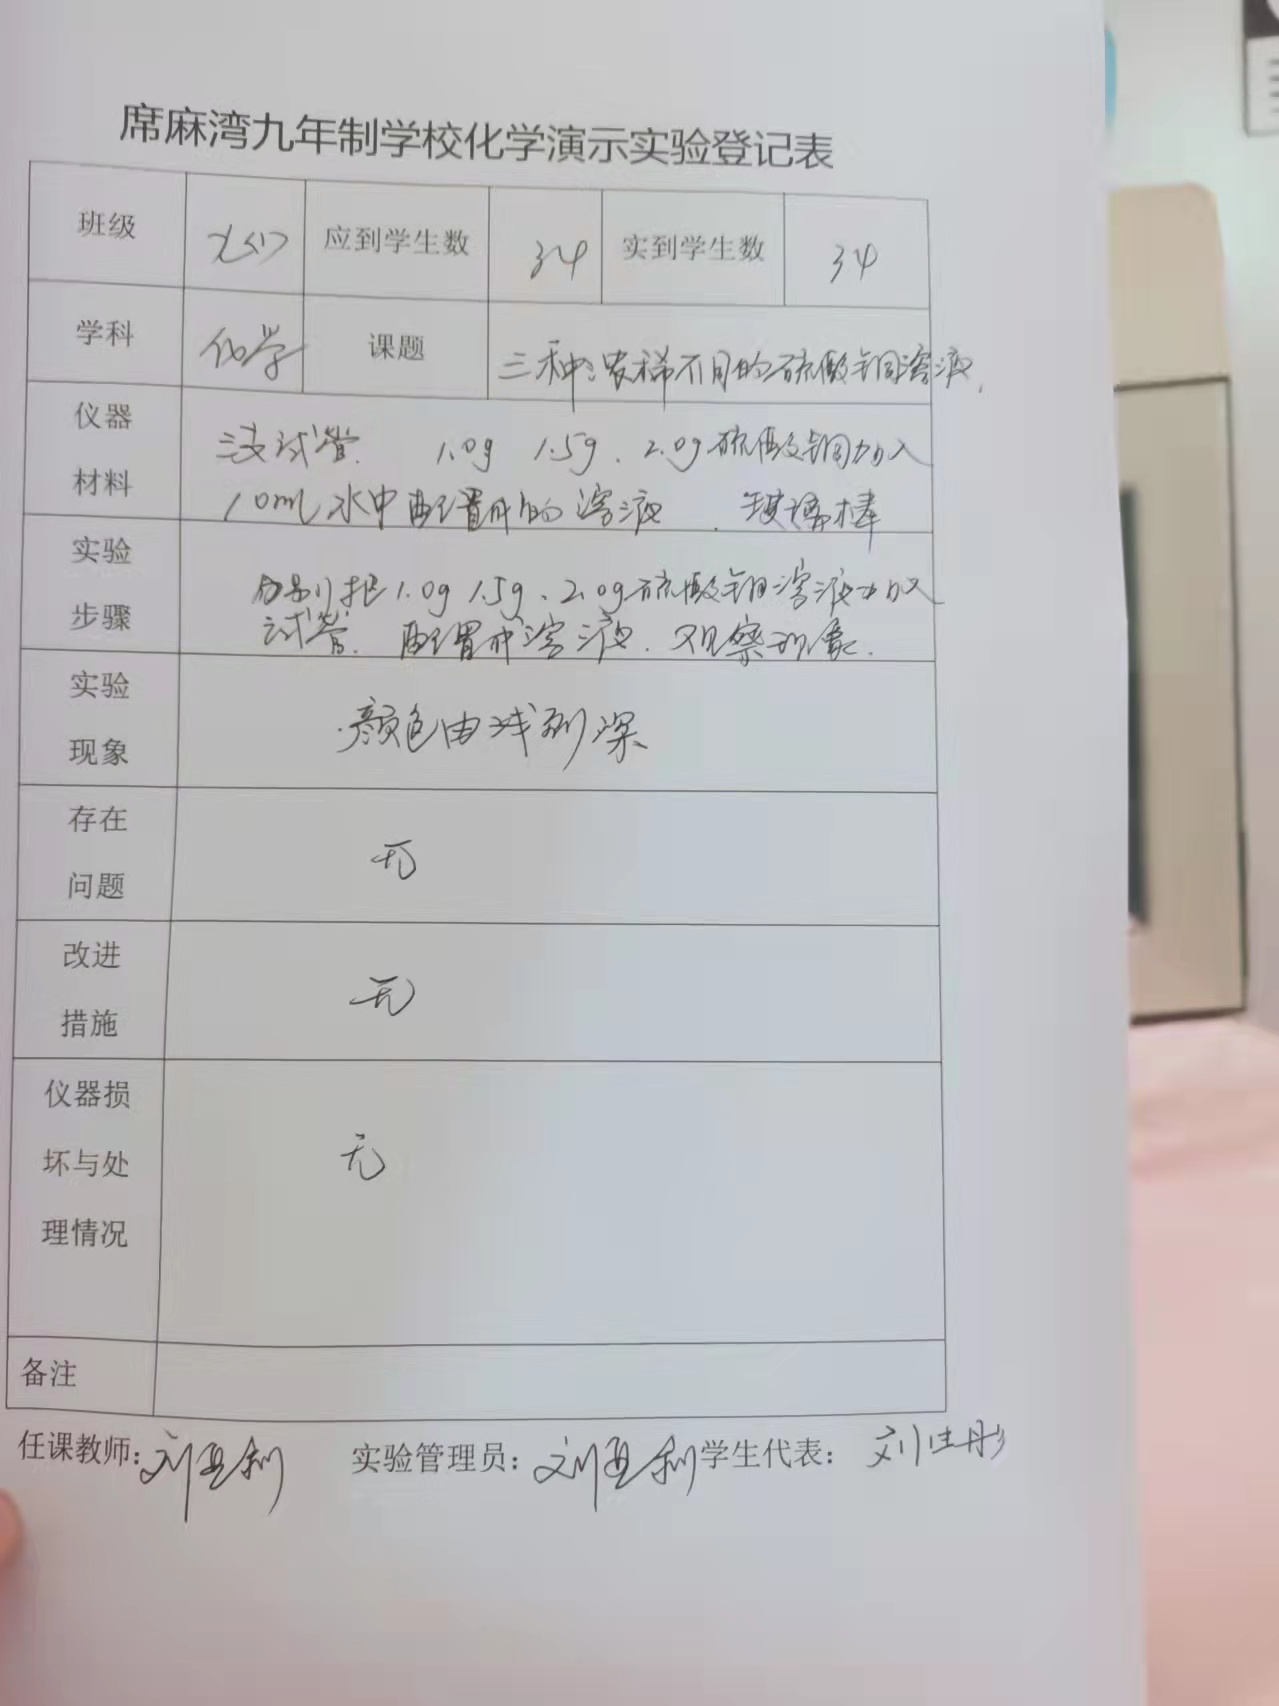 席麻湾九年制学校化学演示实验登记表
班级 九(1) 应到学生数 34 实到学生数 34
学科 化学 课题 三种浓稀不同的硫酸铜溶液.
仪器
材料
三支试管. 1.0g 1.5g、2.0g硫酸铜加入
10ml水中配置成的溶液 . 玻璃棒
实验
步骤
分别把1.0g 1.5g、2.0g硫酸铜溶液加入
试管. 配置成溶液. 观察现象.
实验
现象
颜色由浅到深
存在
问题
无
改进
措施
无
仪器损
坏与处
理情况
无
备注
任课教师: 刘亚利 实验管理员: 刘亚利 学生代表: 刘